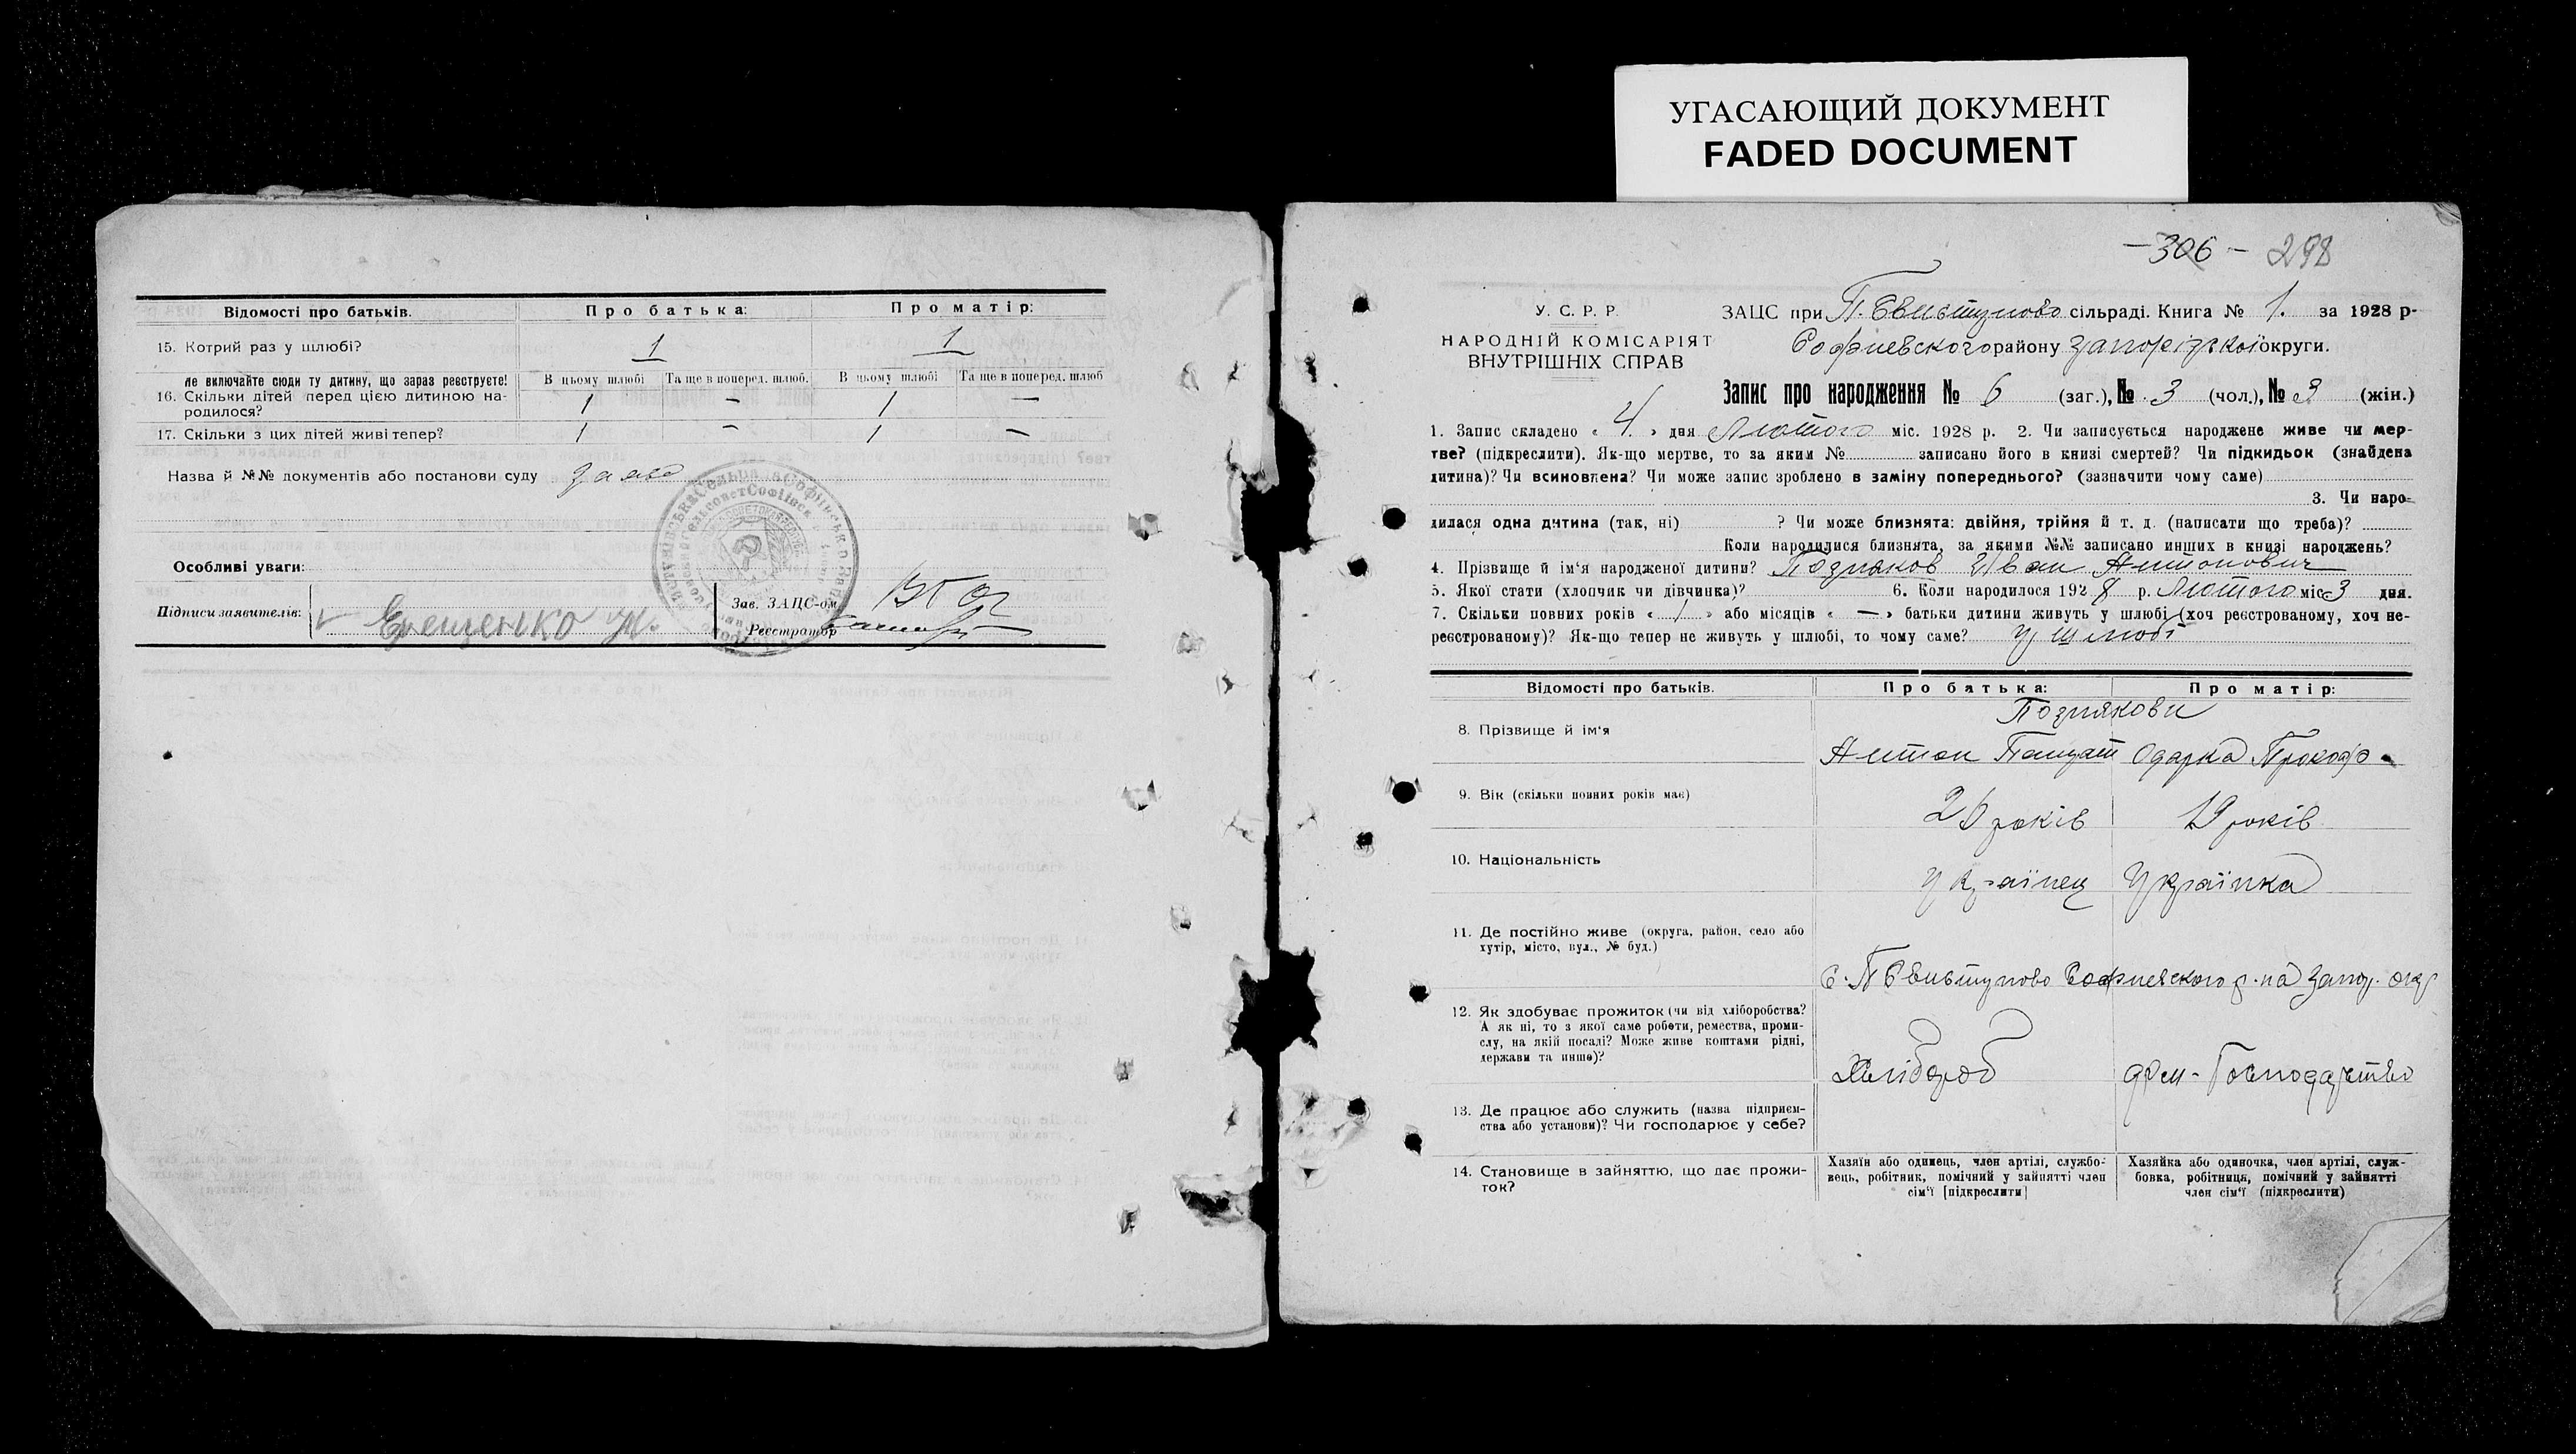 УГАСАЮЩИЙ ДОКУМЕНТ
FADED DOCUMENT
Відомості про батьків. Про батька: Про матір:
15. Котрий раз у шлюбі? 1 1
не включайте сюди ту дитину, що зараз реєструєте! В цьому шлюбі Та ще в поперед. шлюб. В цьому шлюбі Та ще в поперед. шлюб
16. Скільки дітей перед цією дитиною на-
родилося? 1 — 1 —
17. Скільки з цих дітей живі тепер? 1 — 1 —
Назва й №№ документів або постанови суду
Особливі уваги:
Підписи заявителів: Єрещенко
Зав. ЗАЦС-ом
Реєстратор
— 306 — 298
У. С. Р. Р.
НАРОДНІЙ КОМІСАРІЯТ
ВНУТРІШНІХ СПРАВ
ЗАЦС при П. Свистуново сільраді. Книга № 1. за 1928 р-
Софиевского району Запорізької округи.
Запис про народження № 6 (заг.), № 3 (чол.), № 3 (жін.)
1. Запис складено « 4 » дня Лютого міс. 1928 р. 2. Чи записується народжене живе чи мер-
тве? (підкреслити). Як-що мертве, то за яким № записано його в книзі смертей? Чи підкидьок (знайдена
дитина)? Чи всиновлена? Чи може запис зроблено в заміну попереднього? (зазначити чому саме)
3. Чи наро-
дилася одна дитина (так, ні) ? Чи може близнята: двійня, трійня й т. д. (написати що треба)?
Коли народилися близнята, за якими №№ записано инших в книзі народжень?
4. Прізвище й ім'я народженої дитини? Позняков Иван Антонович
5. Якої стати (хлопчик чи дівчинка)? 6. Коли народилося 192 8 р. Лютого міс. 3 дня.
7. Скільки повних років « 1 » або місяців « — » батьки дитини живуть у шлюбі (хоч реєстрованому, хоч не-
реєстрованому)? Як-що тепер не живуть у шлюбі, то чому саме? у шлюбі
Відомості про батьків. Про батька: Про матір:
Познякови
8. Прізвище й ім'я Антон Одарка Прокоф
9. Вік (скільки повних років має) 26 років 19 років
10. Національність Українец Українка
11. Де постійно живе (округа, район, село або
хутір, місто, вул., № буд.)
С. П Свистуново Софиевского р-на Запор. окр
12. Як здобуває прожиток (чи від хліборобства?
А як ні, то з якої саме роботи, ремества, проми-
слу, на якій посаді? Може живе коштами рідні,
держави та инше)?
Хлібороб дом-Господарство
13. Де працює або служить (назва підприєм-
ства або установи)? Чи господарює у себе?
14. Становище в зайняттю, що дає прожи-
ток?
Хазяїн або одинець, член артілі, службо-
вець, робітник, помічний у зайнятті член
сім'ї [підкреслити]
Хазяйка або одиночка, член артілі, служ-
бовка, робітниця, помічний у зайнятті
член сім'ї (підкреслити)